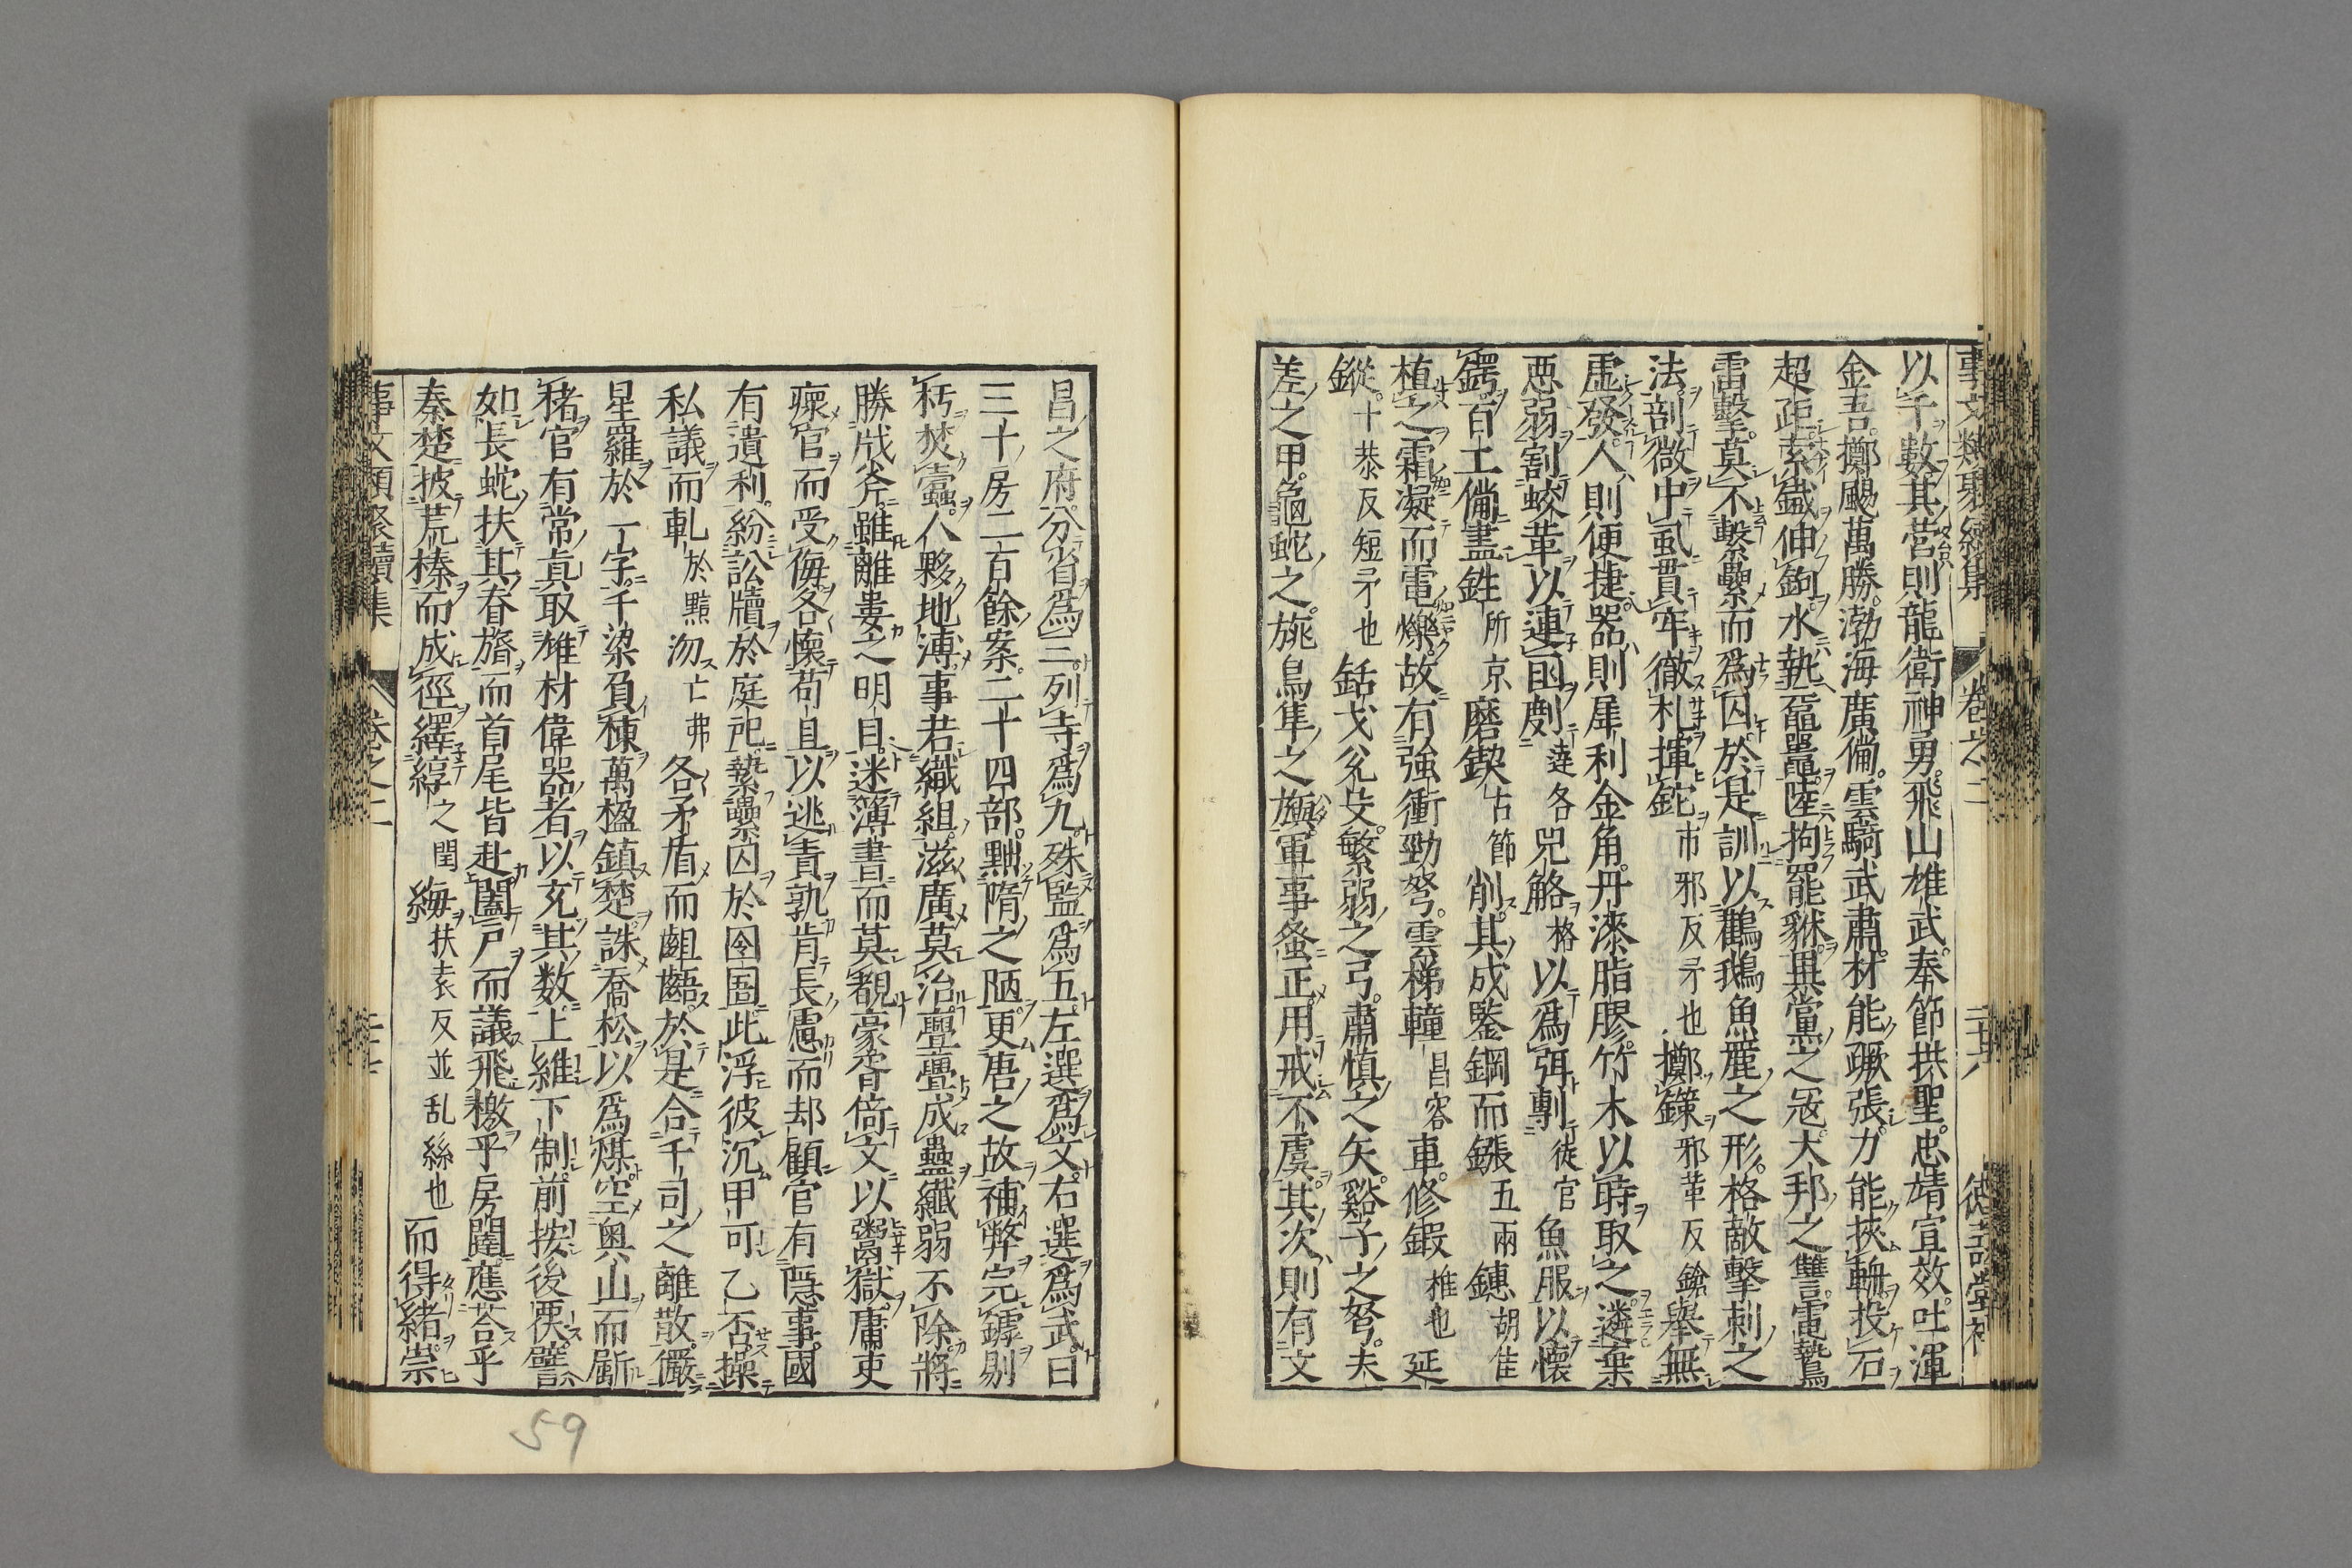 事文類聚續集 卷之二 二十六 德壽堂補
以千數其營則龍衛神勇飛山雄武奉節拱聖忠靖宣效吐渾
金吾擲颺萬勝渤海廣備雲騎武肅材能蹶張力能挾輈投石
超距索鐵伸鉤水執黿鼉陸拘羆貅異黨之寇犬邦之讐電驚
雷擊莫不繫纍而爲囚於是訓以鸛鵝魚麗之形格敵擊刺之
法剖微中虱貫牢徹札揮鉈市邪反矛也擲䥲邪革反鎗舉無
虚發人則便捷器則犀利金角丹漆脂膠竹木以時取之遴棄
惡弱割蛟革以連函劇達各兕觡格以爲弭剸徒官魚服以懷
鍔百工備盡鉎所京磨鍥古節削其成鑒鋼而鏹五兩鏸胡隹
植之霜凝而電爍故有強衝勁弩雲梯轒昌容車修鍛椎也延
鏦十恭反短矛也銛戈兊殳繁弱之弓肅慎之矢谿子之弩夫
差之甲龜蛇之旐鳥隼之旟軍事毖正用戒不虞其次則有文
昌之府分省爲三列寺爲九殊監爲五左選爲文右選爲武曰
三十房二百餘案二十四部黜隋之陋更唐之故補弊完罅剔
朽焚蠹人夥地溥事若織組滋廣莫治亹亹成蠱纖弱不除將
勝戕斧雖離婁之明目迷簿書而莫覩豪脊倚文以鬻獄庸吏
瘝官而受侮各懷苟且以逃責孰肯長慮而却顧官有隱事國
有遺利紛訟牘於庭戺縶纍囚於囹圄此浮彼沉甲可乙否操
私議而軋於黠沕亡弗各矛盾而齟齬於是合千司之離散儼
星羅於一字千梁負棟萬楹鎭楚誅喬松以爲煤空奥山而斸
楮官有常員取雄材偉器者以充其数上維下制前按後覆譬
如長蛇扶其脊膂而首尾皆赴闔戸而議飛檄乎房闥應荅乎
秦楚披荒榛而成徑繹綧之閏䋣扶袁反並乱絲也而得緒崇
事文類聚續集 卷之二 二十七
59